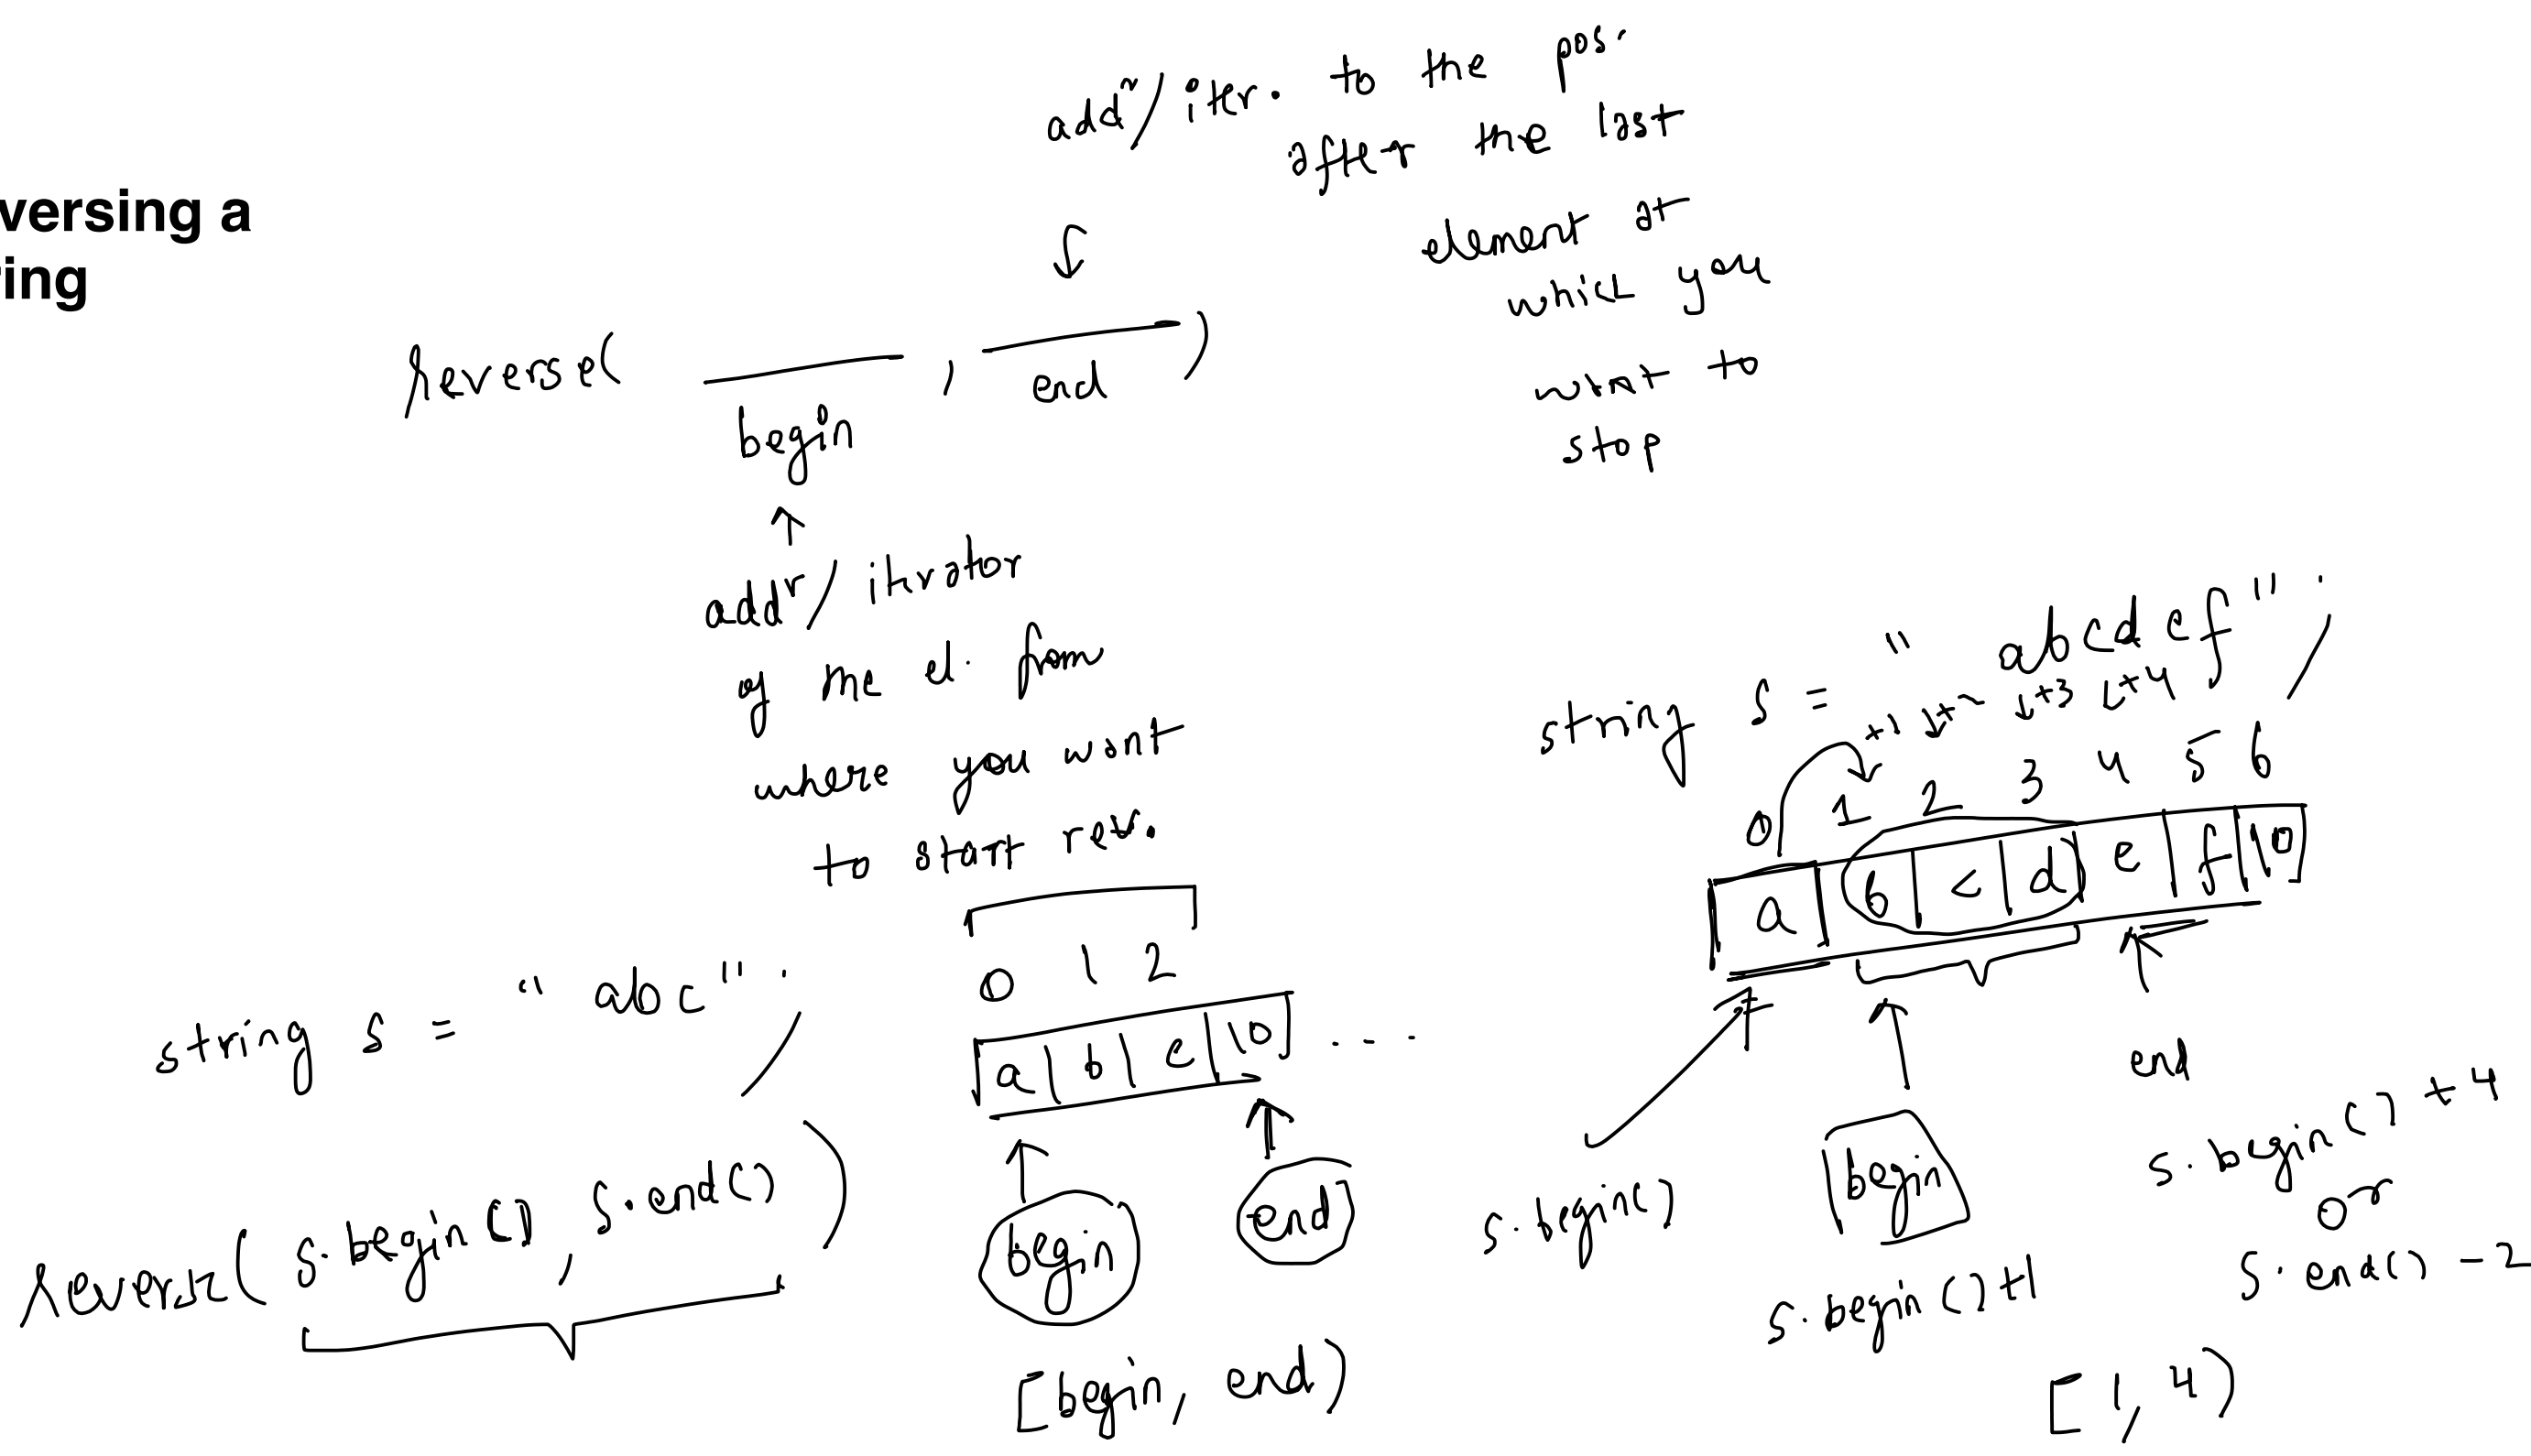 versing a
ing
add^r/iter. to the pos.
after the last
element at
which you
want to
stop
reverse( , )
begin
end
add^r/iterator
of the el. from
where you want
to start rev.
string s = "abc";
0 1 2
a|b|c|\0| ....
begin
end
reverse(s.begin(), s.end())
[begin, end)
string s = "abcdef";
+1 +2 +3 +4
0 1 2 3 4 5 6
|a|b|c|d|e|f|\0|
s.begin()
begin
s.begin()+1
end
s.begin()+4
or
s.end()-2
[1, 4)